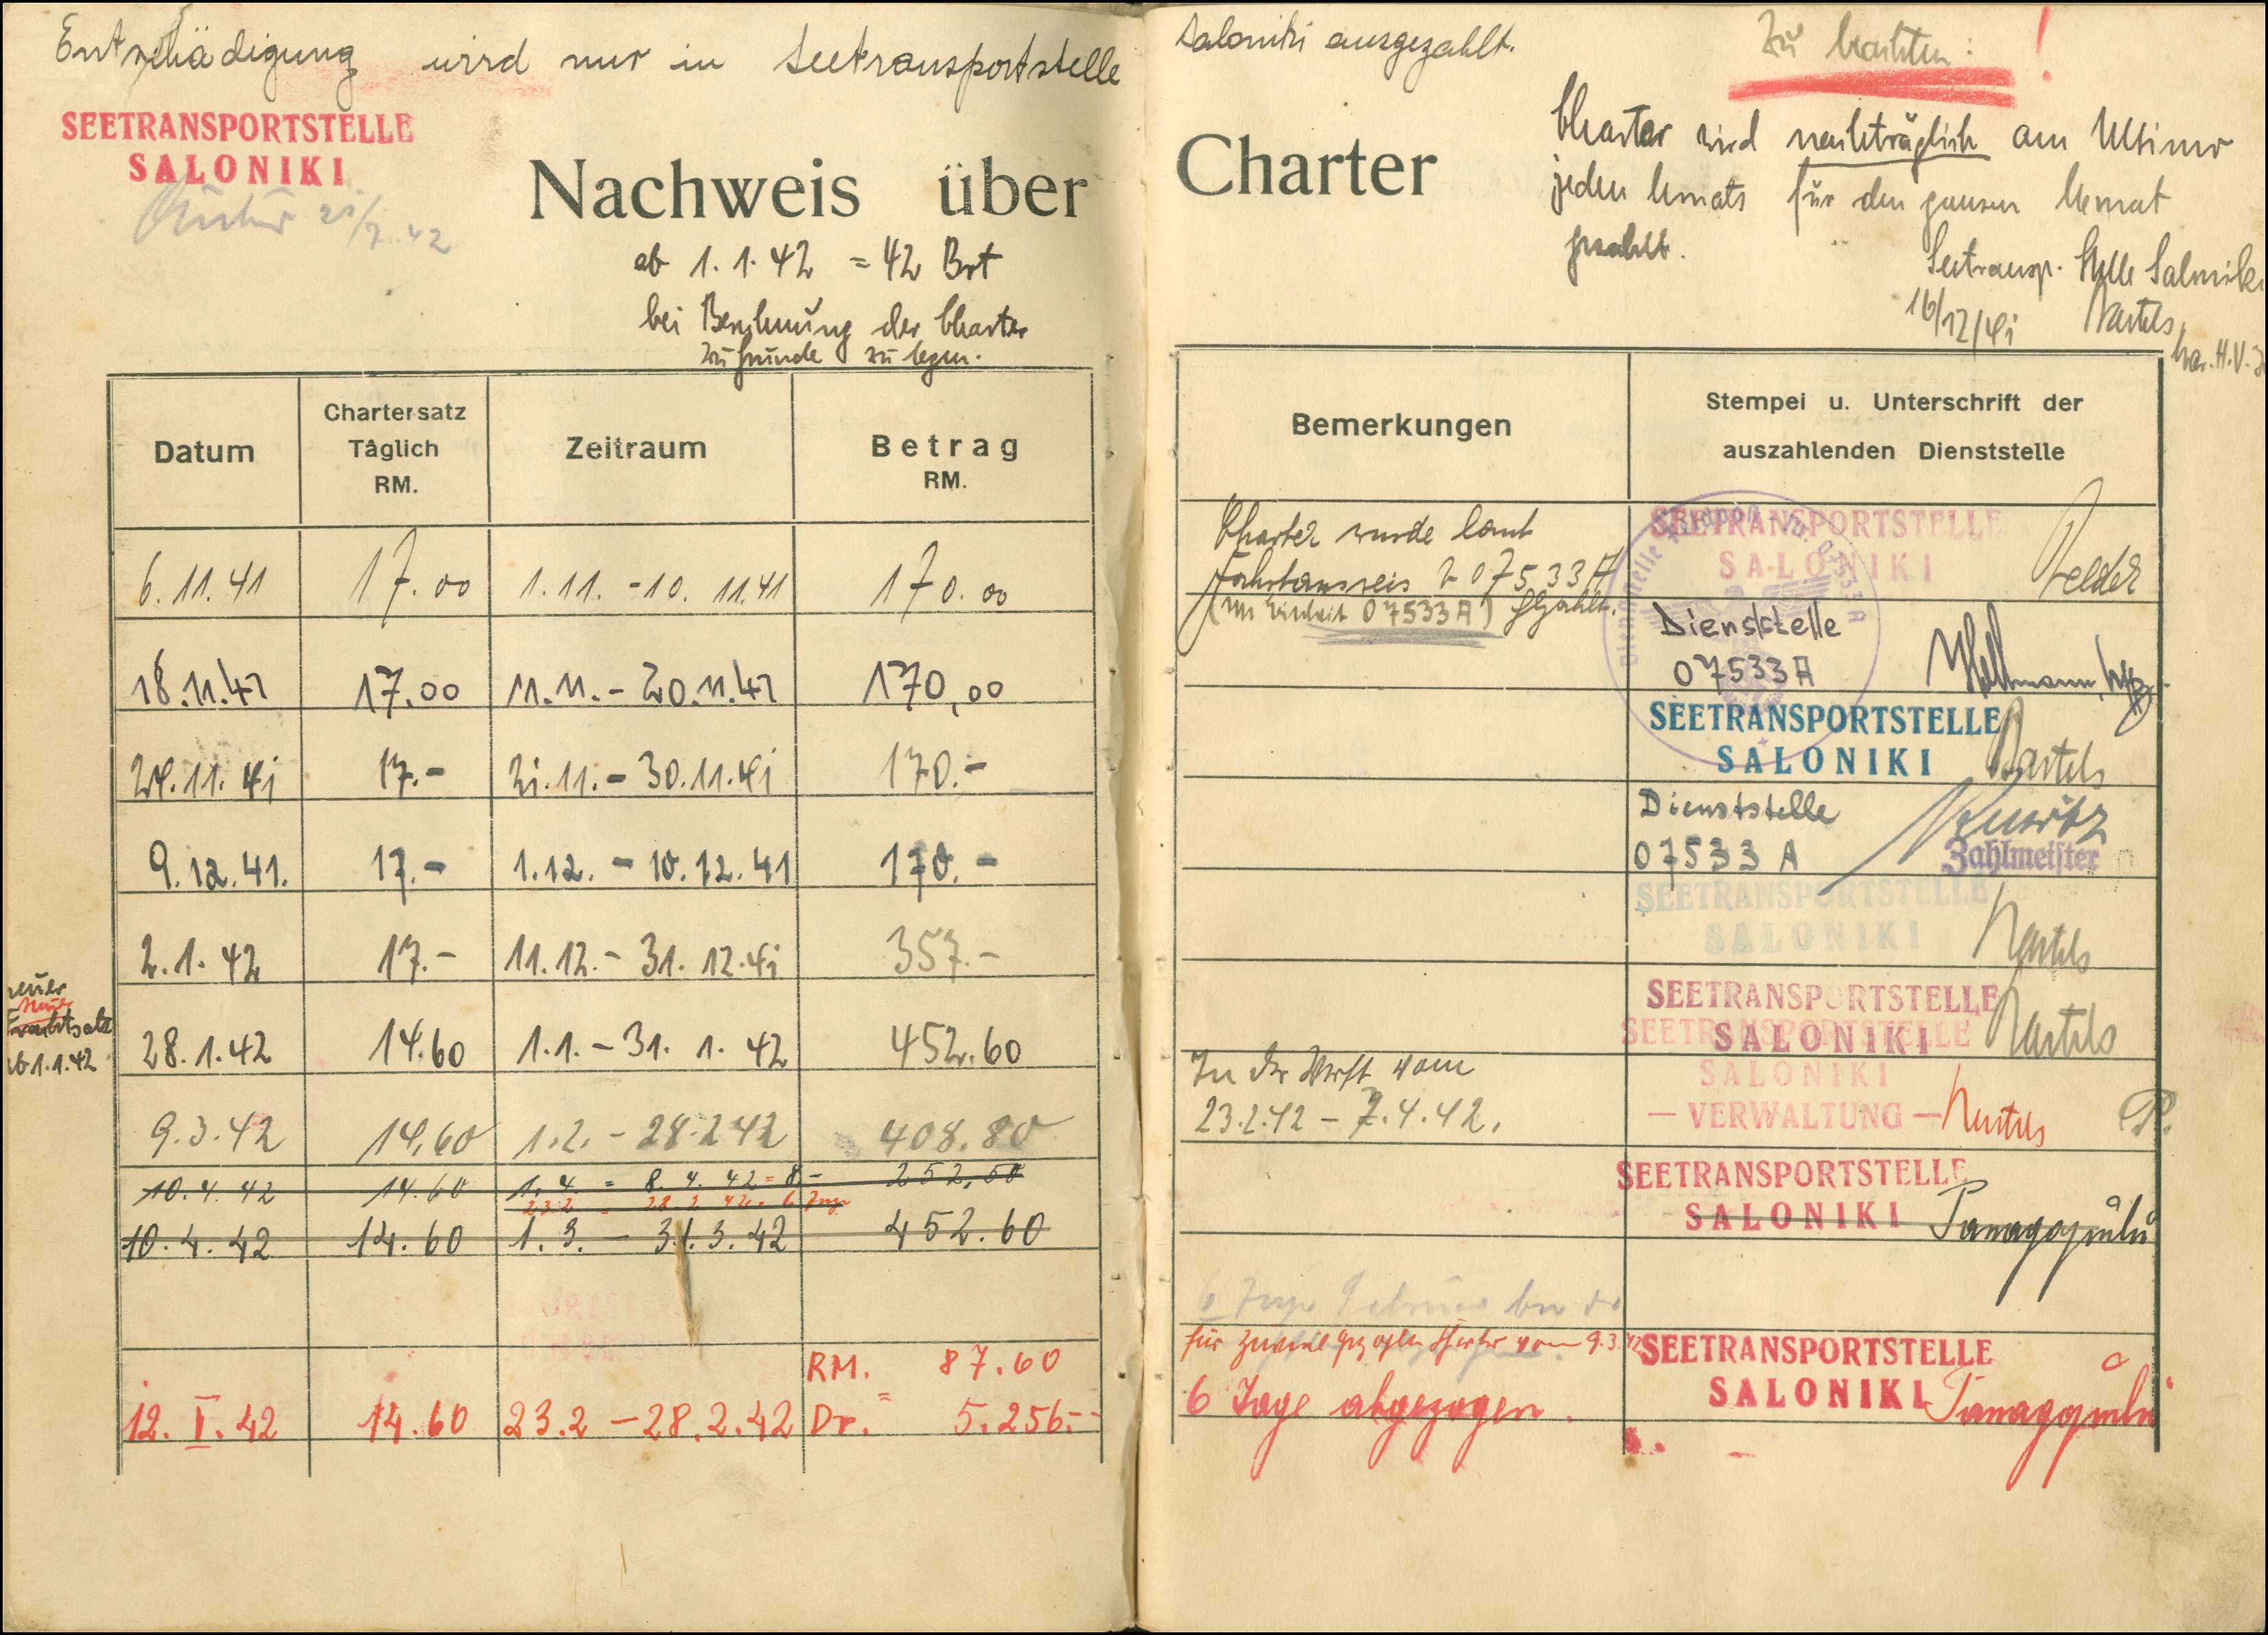 Entschädigung wird nur in Seetransportstelle
Saloniki ausgezahlt.
SEETRANSPORTSTELLE
SALONIKI
21/7.42
Nachweis über
Charter
ab 1.1.42 = 42 Brt
bei Berechnung der Charter
zu Grunde zu legen.
Zu beachten: !
Charter wird nachträglich am Ultimo
jeden Monats für den ganzen Monat
gezahlt.
Seetransp. Stelle Saloniki
16/12/41 Bartels
Datum
Chartersatz
Tâglich
RM.
Zeitraum
Betrag
RM.
Bemerkungen
Stempei u. Unterschrift der
auszahlenden Dienststelle
6.11.41 17.00 1.11.-10.11.41 170.00
Charter wurde laut
Fahrtausweis 07533A
(von Einheit 07533A) gezahlt.
SEETRANSPORTSTELLE
SALONIKI
18.11.41 17.00 11.11.-20.11.41 170,00
Dienststelle
07533A
24.11.41 17.- 21.11.-30.11.41 170.-
SEETRANSPORTSTELLE
SALONIKI Bartels
9.12.41. 17.- 1.12.-10.12.41 170.-
Dienststelle
07533 A
Zahlmeister
2.1.42 17.- 11.12.-31.12.41 357.-
SEETRANSPORTSTELLE
SALONIKI Bartels
neuer
neuer
Frachtsatz
ab 1.1.42
28.1.42 14.60 1.1.-31.1.42 452.60
SEETRANSPORTSTELLE
SALONIKI Bartels
9.3.42 14,60 1.2.-28.2.42 408.80
In der Werft vom
23.2.42 - 7.4.42.
SEETRANSPORTSTELLE
SALONIKI
- VERWALTUNG - Bartels
10.4.42 14.60 1.4. = 8.4.42 = 8 - 252,50
23.2 - 28.2.42 = 6 Tage
10.4.42 14.60 1.3. - 31.3.42 452.60
SEETRANSPORTSTELLE
SALONIKI
6 Tage Februar
RM. 87.60
12. I. 42 14.60 23.2 - 28.2.42 Dr. = 5.256.-
für zuviel gezahlte Charter vom 9.3.42
6 Tage abgezogen.
SEETRANSPORTSTELLE
SALONIKI